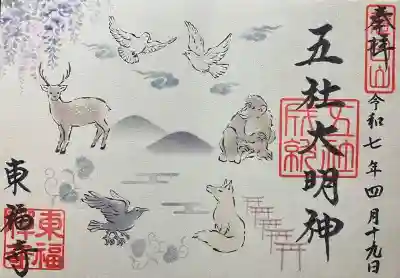 奉拝
令和七年四月十九日
五社大明神
東福寺